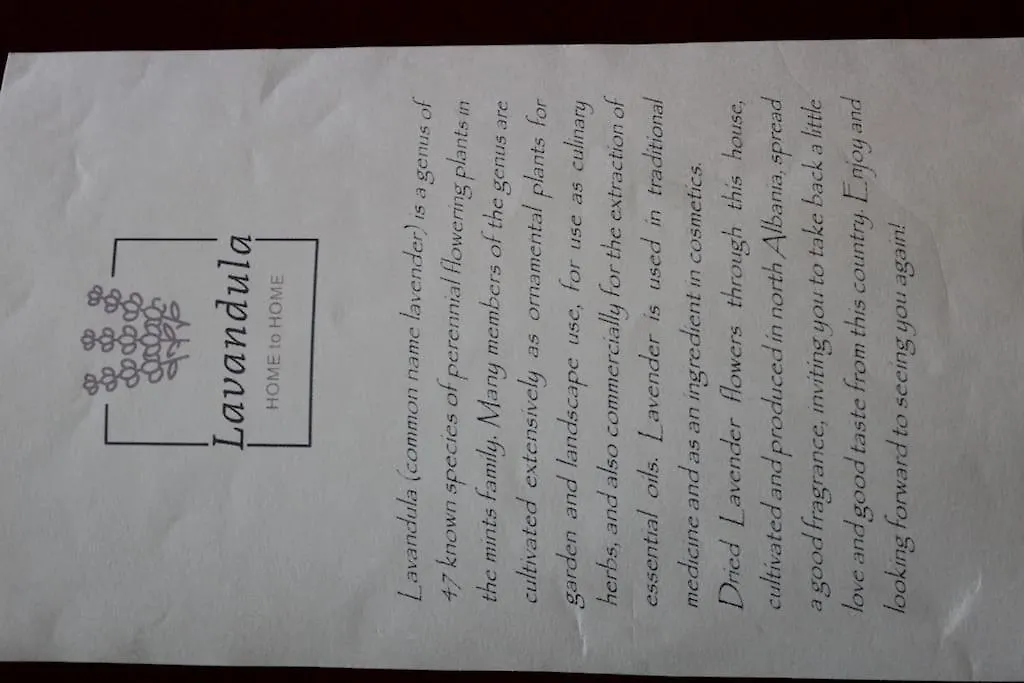 Lavandula
HOME to HOME
Lavandula (common name lavender) is a genus of
47 known species of perennial flowering plants in
the mints family. Many members of the genus are
cultivated extensively as ornamental plants for
garden and landscape use, for use as culinary
herbs, and also commercially for the extraction of
essential oils. Lavender is used in traditional
medicine and as an ingredient in cosmetics.
Dried Lavender flowers through this house,
cultivated and produced in north Albania, spread
a good fragrance, inviting you to take back a little
love and good taste from this country. Enjoy and
looking forward to seeing you again!